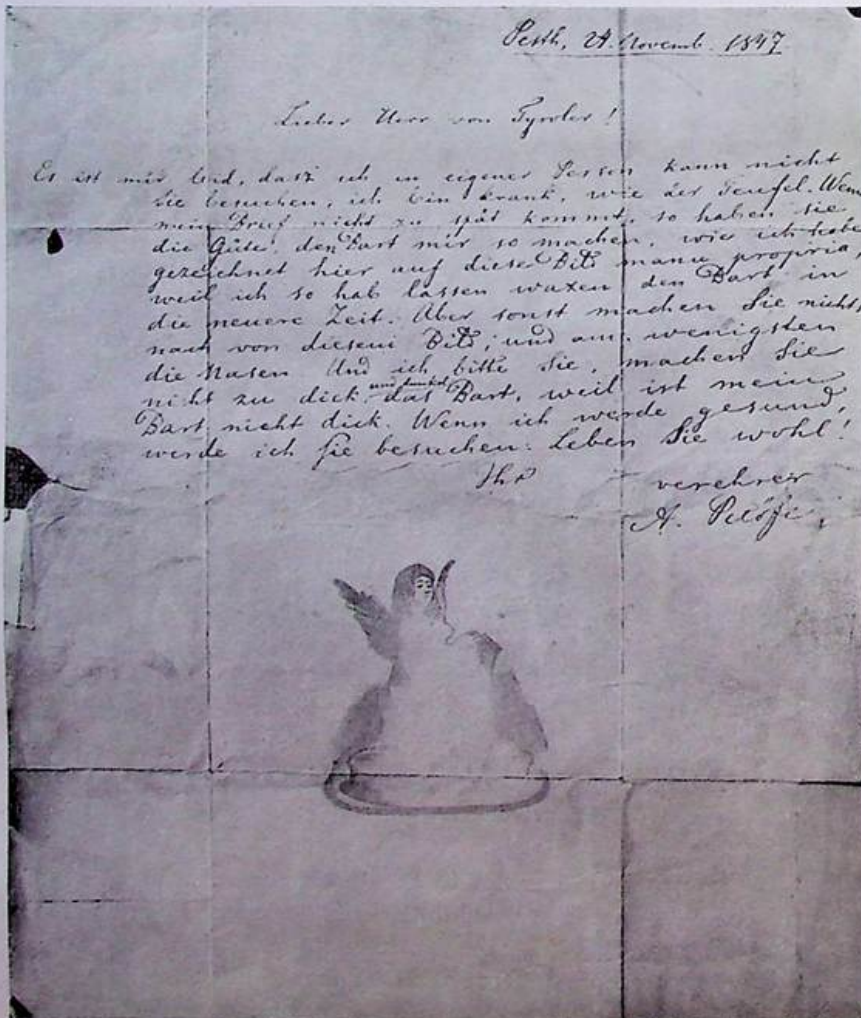 Pesth, 24. Novemb. 1847.
Lieber Herr von Tyroler!
Es ist mir leid, dasz ich in eigener Person kann nicht
Sie besuchen, ich bin krank, wie der Teufel. Wenn
mein Brief nicht zu spät kommt, so haben sie
die Güte, den Bart mir so machen, wie ich habe
gezeichnet hier auf diese Bild manu propria,
weil ich so hab lassen waxen den Bart in
die neuere Zeit. Aber sonst machen Sie nichts
nach von diesem Bild, und am wenigsten
die Nasen. Und ich bitte Sie, machen Sie
nicht zu dick und dunkel das Bart, weil ist mein
Bart nicht dick. Wenn ich werde gesund,
werde ich Sie besuchen. Leben Sie wohl!
Ihr verehrer
A. Petőfi